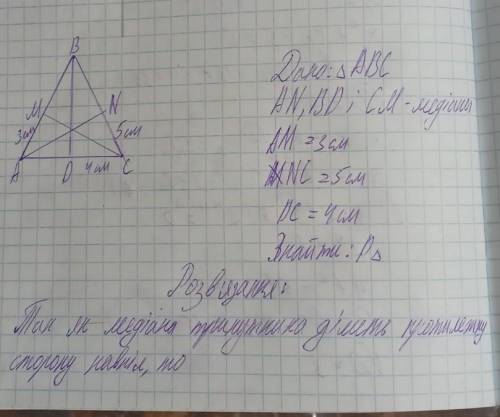 B
M N
3см 5см
A D 4см C
Дано: △ ABC
AN, BD і CM - медіани
AM = 3см
NC = 5см
DC = 4см
Знайти: P△
Розвязання:
Так як медіана трикутника ділить протилежну
сторону навпіл, то